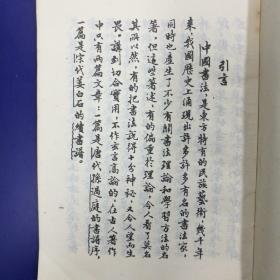 引言
中国書法，是东方特有的民族藝術，幾千年
来，我國歷史上涌現出許多許多有名的書法家，
同時也產生了不少有關書法理論和學習方法的名
著。但這些著述，有的偏重於理論，令人看了莫名
其所以然，有的把書法説得十分神秘，又令人望而生
畏。講到切合實用，不作玄言高論的，在古人著作
中只有兩篇文章：一篇是唐代孫過庭的書譜序，
一篇是宋代姜白石的續書譜。